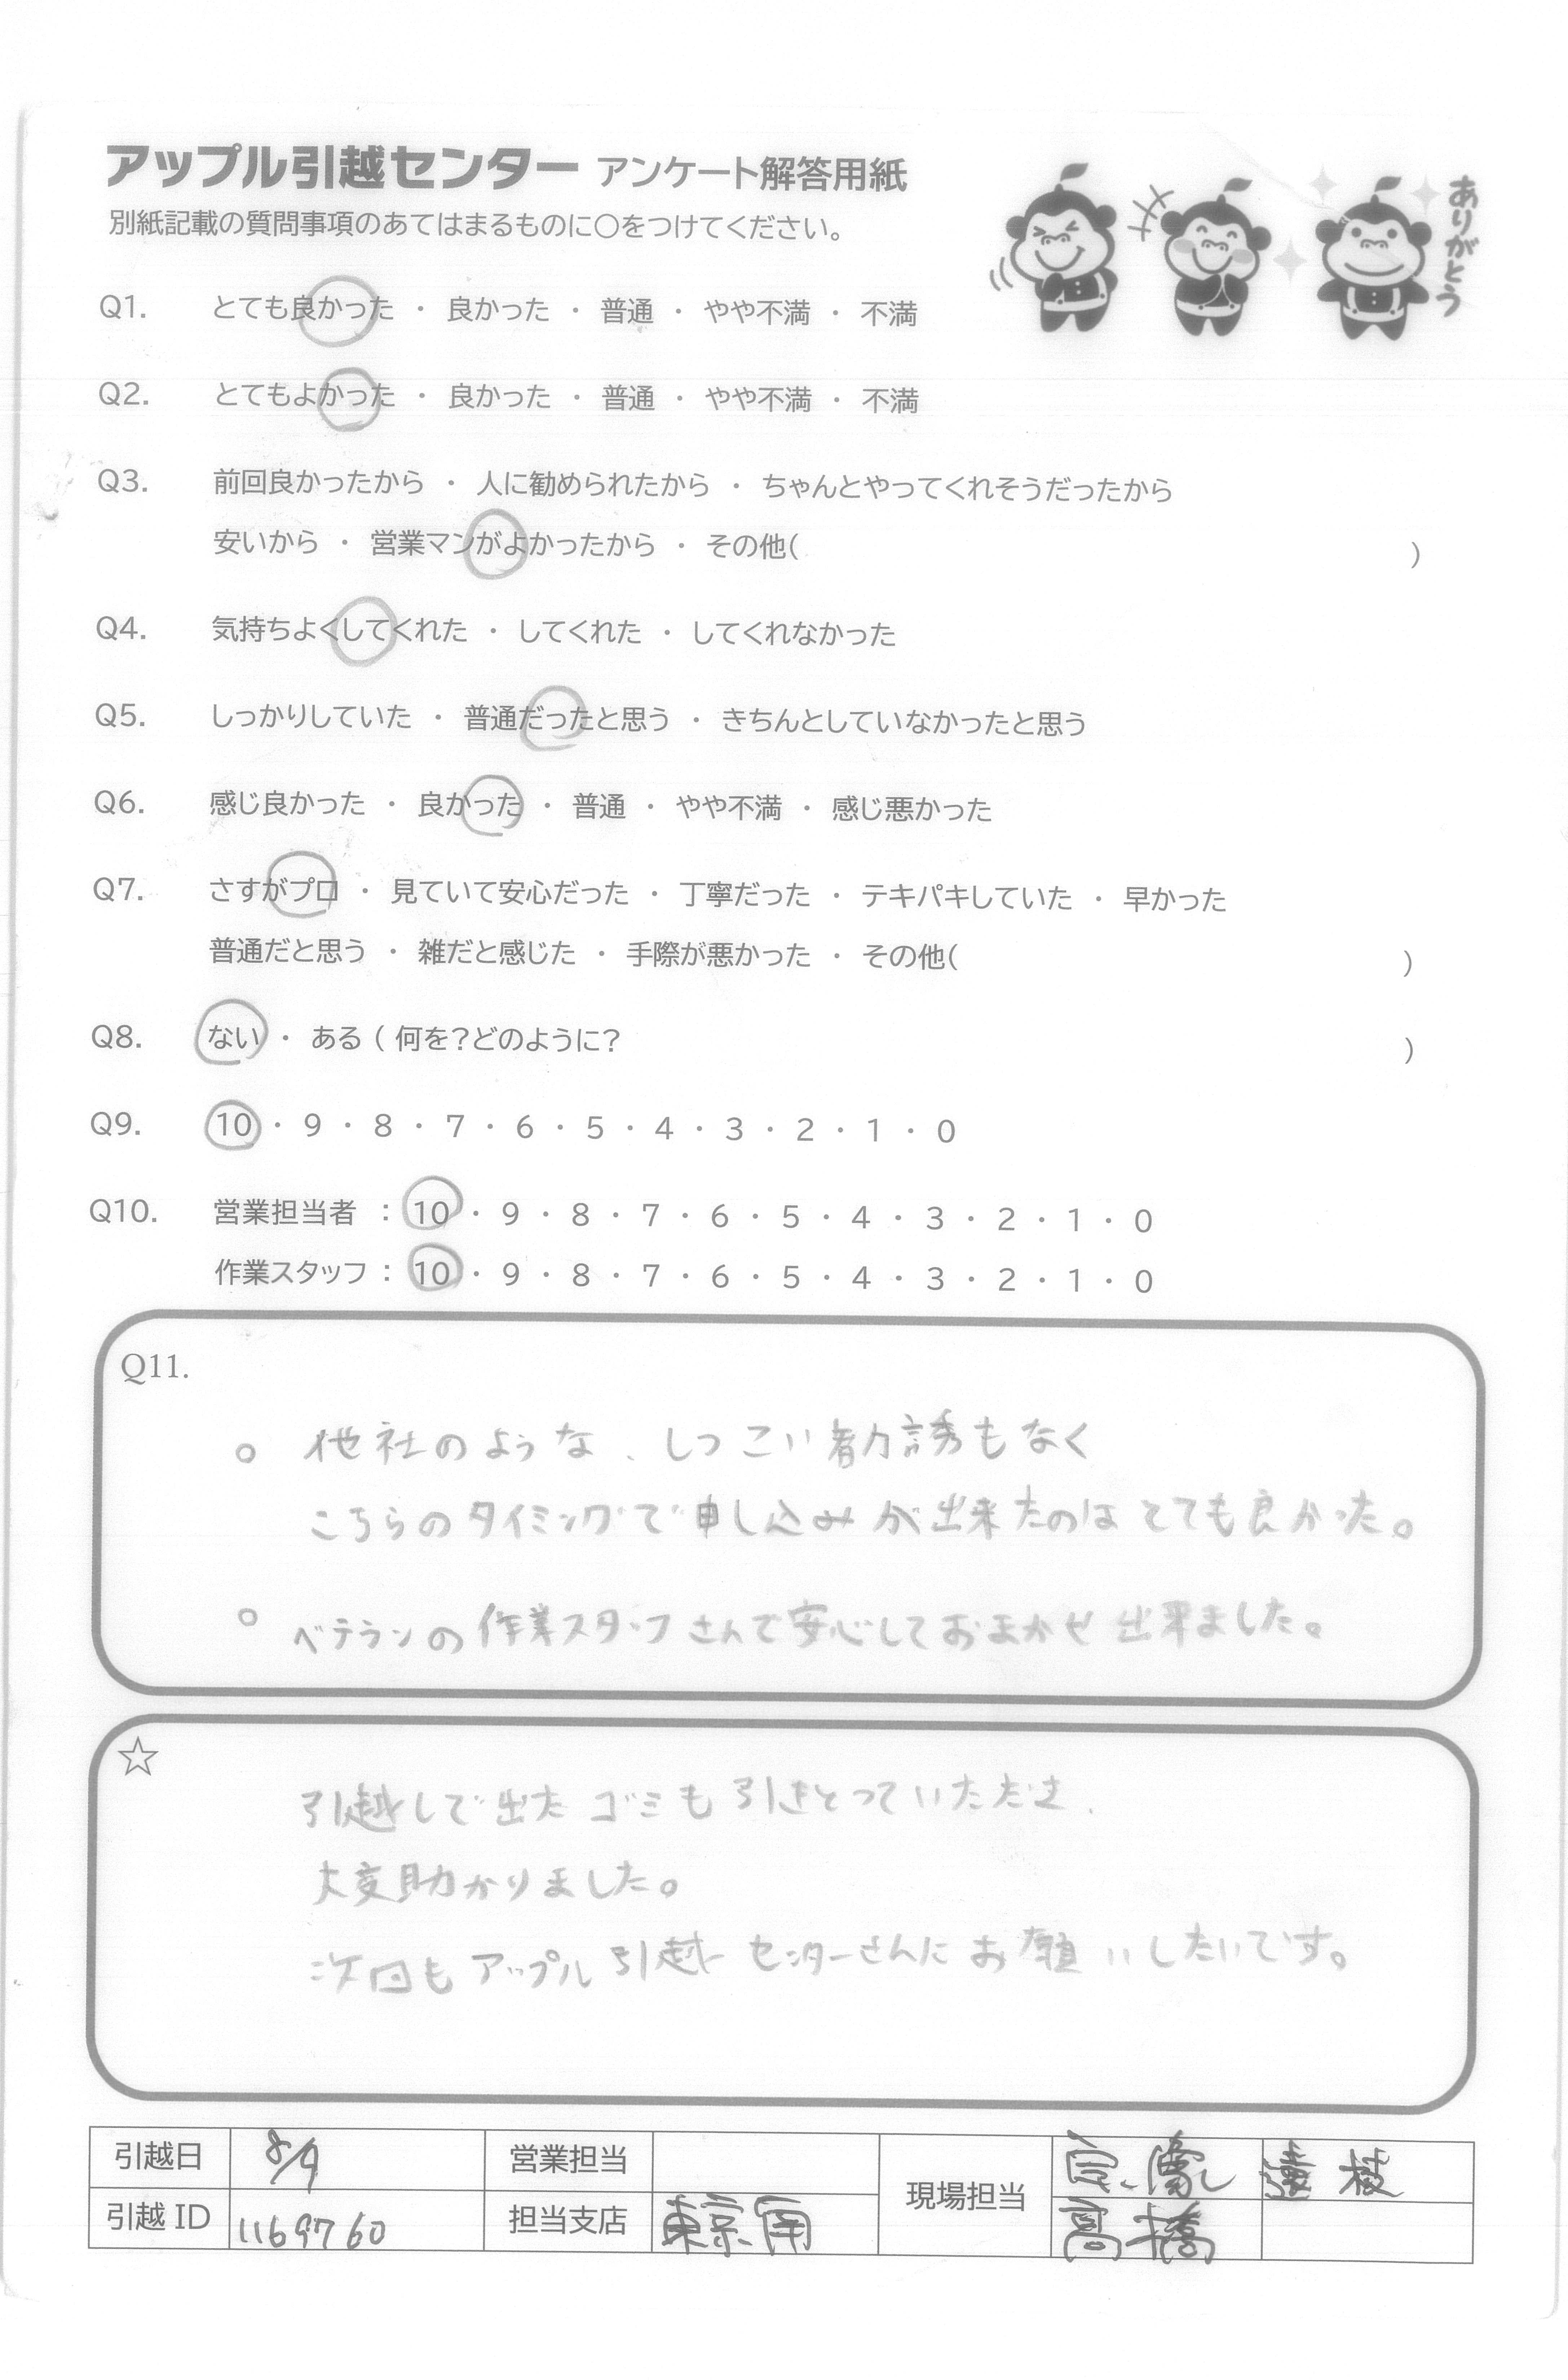 アップル引越センター アンケート解答用紙
ありがとう
別紙記載の質問事項のあてはまるものに○をつけてください。
Q1. とても良かった ・ 良かった ・ 普通 ・ やや不満 ・ 不満
Q2. とてもよかった ・ 良かった ・ 普通 ・ やや不満 ・ 不満
Q3. 前回良かったから ・ 人に勧められたから ・ ちゃんとやってくれそうだったから
安いから ・ 営業マンがよかったから ・ その他( )
Q4. 気持ちよくしてくれた ・ してくれた ・ してくれなかった
Q5. しっかりしていた ・ 普通だったと思う ・ きちんとしていなかったと思う
Q6. 感じ良かった ・ 良かった ・ 普通 ・ やや不満 ・ 感じ悪かった
Q7. さすがプロ ・ 見ていて安心だった ・ 丁寧だった ・ テキパキしていた ・ 早かった
普通だと思う ・ 雑だと感じた ・ 手際が悪かった ・ その他( )
Q8. ない ・ ある ( 何を?どのように? )
Q9. 10 ・ 9 ・ 8 ・ 7 ・ 6 ・ 5 ・ 4 ・ 3 ・ 2 ・ 1 ・ 0
Q10. 営業担当者 : 10 ・ 9 ・ 8 ・ 7 ・ 6 ・ 5 ・ 4 ・ 3 ・ 2 ・ 1 ・ 0
作業スタッフ : 10 ・ 9 ・ 8 ・ 7 ・ 6 ・ 5 ・ 4 ・ 3 ・ 2 ・ 1 ・ 0
Q11.
○ 他社のような、しつこい勧誘もなく
こちらのタイミングで申し込みが出来たのはとても良かった。
○ ベテランの作業スタッフさんで安心しておまかせ出来ました。
☆
引越しで出たゴミも引きとっていただき、
大変助かりました。
次回もアップル引越センターさんにお願いしたいです。
引越日 8/9 営業担当 現場担当 遠枝
引越 ID 1169760 担当支店 東京南 高橋